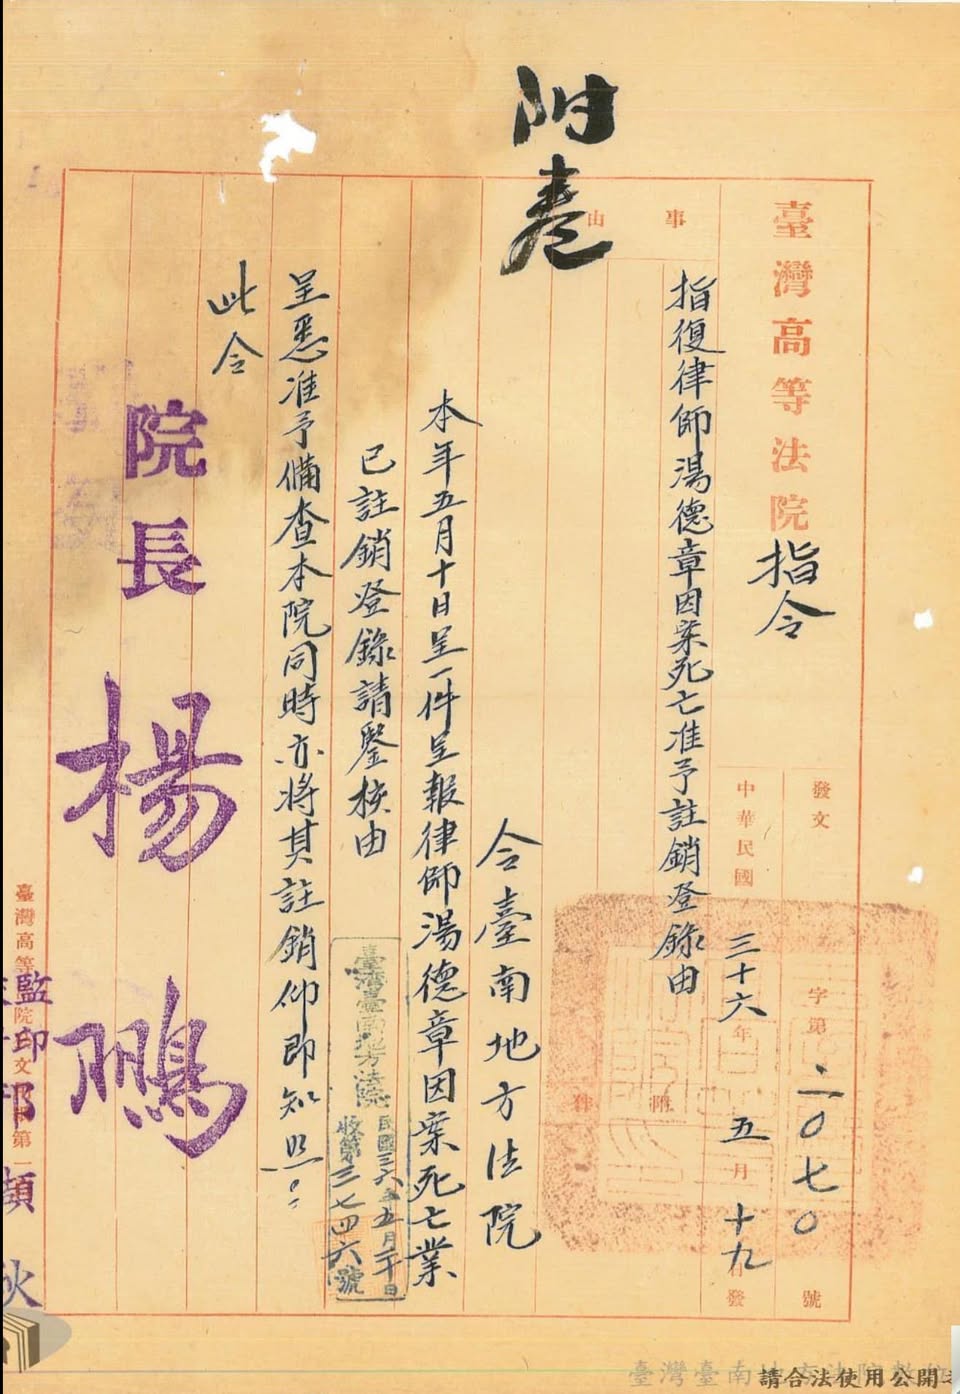 附卷
臺灣高等法院 指令
發文 字第二〇七〇號
中華民國三十六年五月十九日發
附件
事由
指復律師湯德章因案死亡准予註銷登錄由
令臺南地方法院
本年五月十日呈一件呈報律師湯德章因案死亡業
已註銷登錄請鑒核由
呈悉准予備查本院同時亦將其註銷仰即知照
此令
院長 楊鵬
臺灣臺南地方法院
民國三六年五月二十日
收第三七四六號
監印
臺灣高等法院文
請合法使用公開